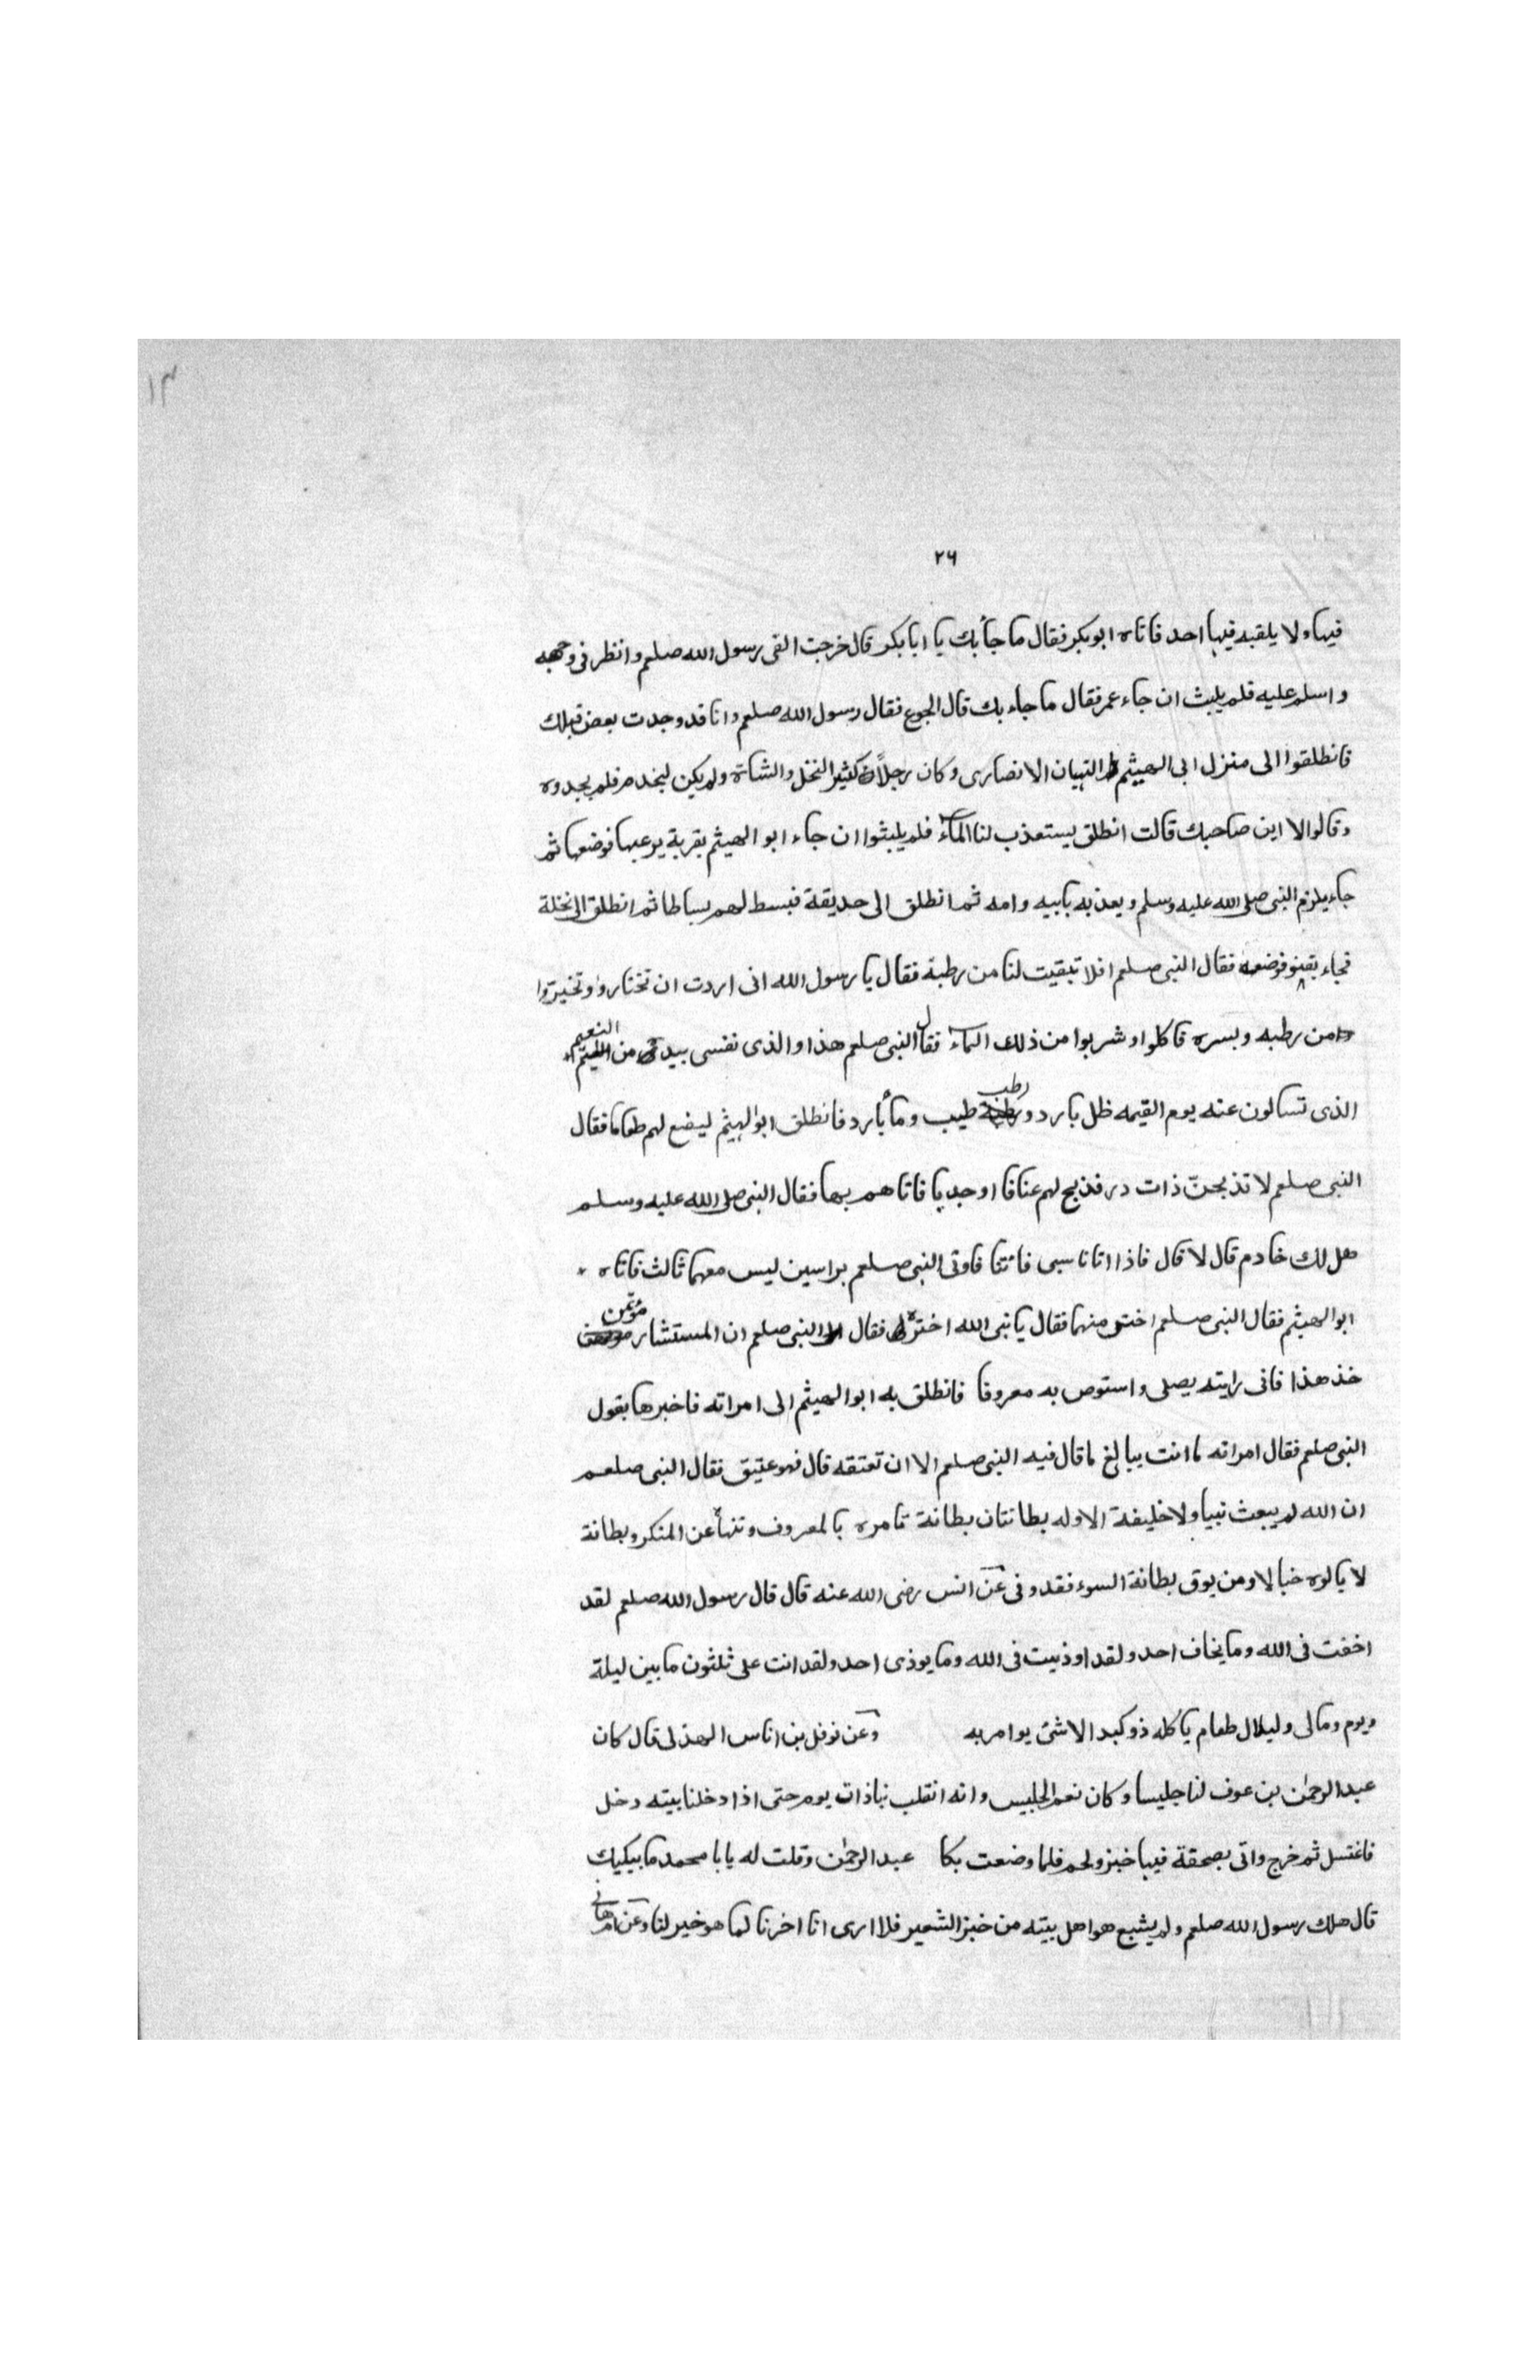 ١٣
٢٦
فيها ولا يلقيه فيها احد فاتاه ابوبكر فقال ما جأبك يا ابابكر قال خرجت القى رسول الله صلعم وانظر فى وجهه
واسلم عليه فلم يلبث ان جاء عمر فقال ما جاء بك قال الجوع فقال رسول الله صلعم وانا قد وجدت بعض
فانطلقوا الى منزل ابى الهيثم التيهان الانصارى وكان رجلاً كثير النخل والشاة ولم يكن فلم يجدوه
وقالوا لا اين صاحبك قالت انطلق يستعذب لنا المآء فلم يلبثوا ان جاء ابو الهيثم بقربة يرعبها فوضعها ثم
جاء يلزم النبى صلى الله عليه وسلم ويعذبه بابيه وامه ثم انطلق الى حديقة فبسط لهم بساطا ثم انطلق الى نخلة
فجاء بقنو فوضعه فقال النبى صلعم افلا تبقيت لنا من رطبة فقال يا رسول الله انى اردت ان تختاروا وتخيروا
من رطبه وبسره فاكلوا وشربوا من ذلك المآء فقال النبى صلعم هذا والذى نفسى بيده من النعيم
الذى تسالون عنه يوم القيمه ظل بارد ورطب طيب ومأ بارد فانطلق ابوالهيثم ليضع لهم طعاما فقال
النبى صلعم لا تذبحنّ ذات در فذبح لهم عناقا اوجديا فاتاهم بها فقال النبى صلى الله عليه وسلم
هل لك خادم قال لا قال فاذا اتانا سبى فائتنا فاوتى النبى صلعم براسين ليس معهما ثالث فاتاه
ابو الهيثم فقال النبى صلعم اختر منهما فقال يا نبى الله اختر لى فقال النبى صلعم ان المستشار مؤتمن
خذ هذا فانى رايته يصلى واستوص به معروفا فانطلق به ابو الهيثم الى امراته فاخبرها بقول
النبى صلعم فقال امراته ما انت ببالغ ما قال فيه النبى صلعم الا ان تعتقه قال فهو عتيق فقال النبى صلعم
ان الله لم يبعث نبيا ولا خليفة الا وله بطانتان بطانة تامره بالمعروف وتنهأ عن المنكر وبطانة
لا يالوه خبالا ومن يوق بطانة السوء فقد وفى عن انس رضى الله عنه قال قال رسول الله صلعم لقد
اخفت فى الله وما يخاف احد ولقد اوذيت فى الله وما يوذى احد ولقد اتت على ثلثون ما بين ليلة
ويوم ومالى ولبلال طعام ياكله ذو كبد الا شئ يوامر به وعن نوفل بن اناس الهذلى قال كان
عبدالرحمٰن بن عوف لنا جليسا وكان نعم الجليس وانه انقلب بنا ذات يوم حتى اذا دخلنا بيته دخل
فاغتسل ثم خرج واتى بصحفة فيها خبز ولحم فلما وضعت بكا عبدالرحمٰن وقلت له يابا محمد ما يبكيك
قال هلك رسول الله صلعم ولم يشبع هو اهل بيته من خبز الشعير فلا ارى انا اخرنا لما هو خير لنا وعن ام هانى